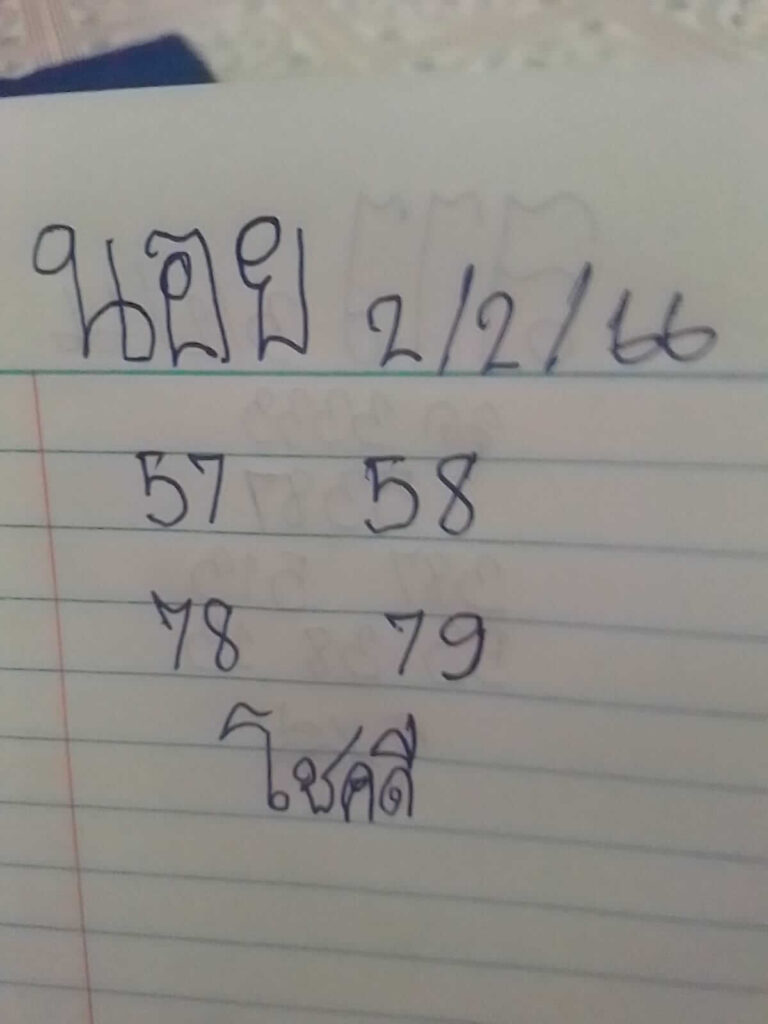 นอย 2/2/66
57 58
78 79
โชคดี